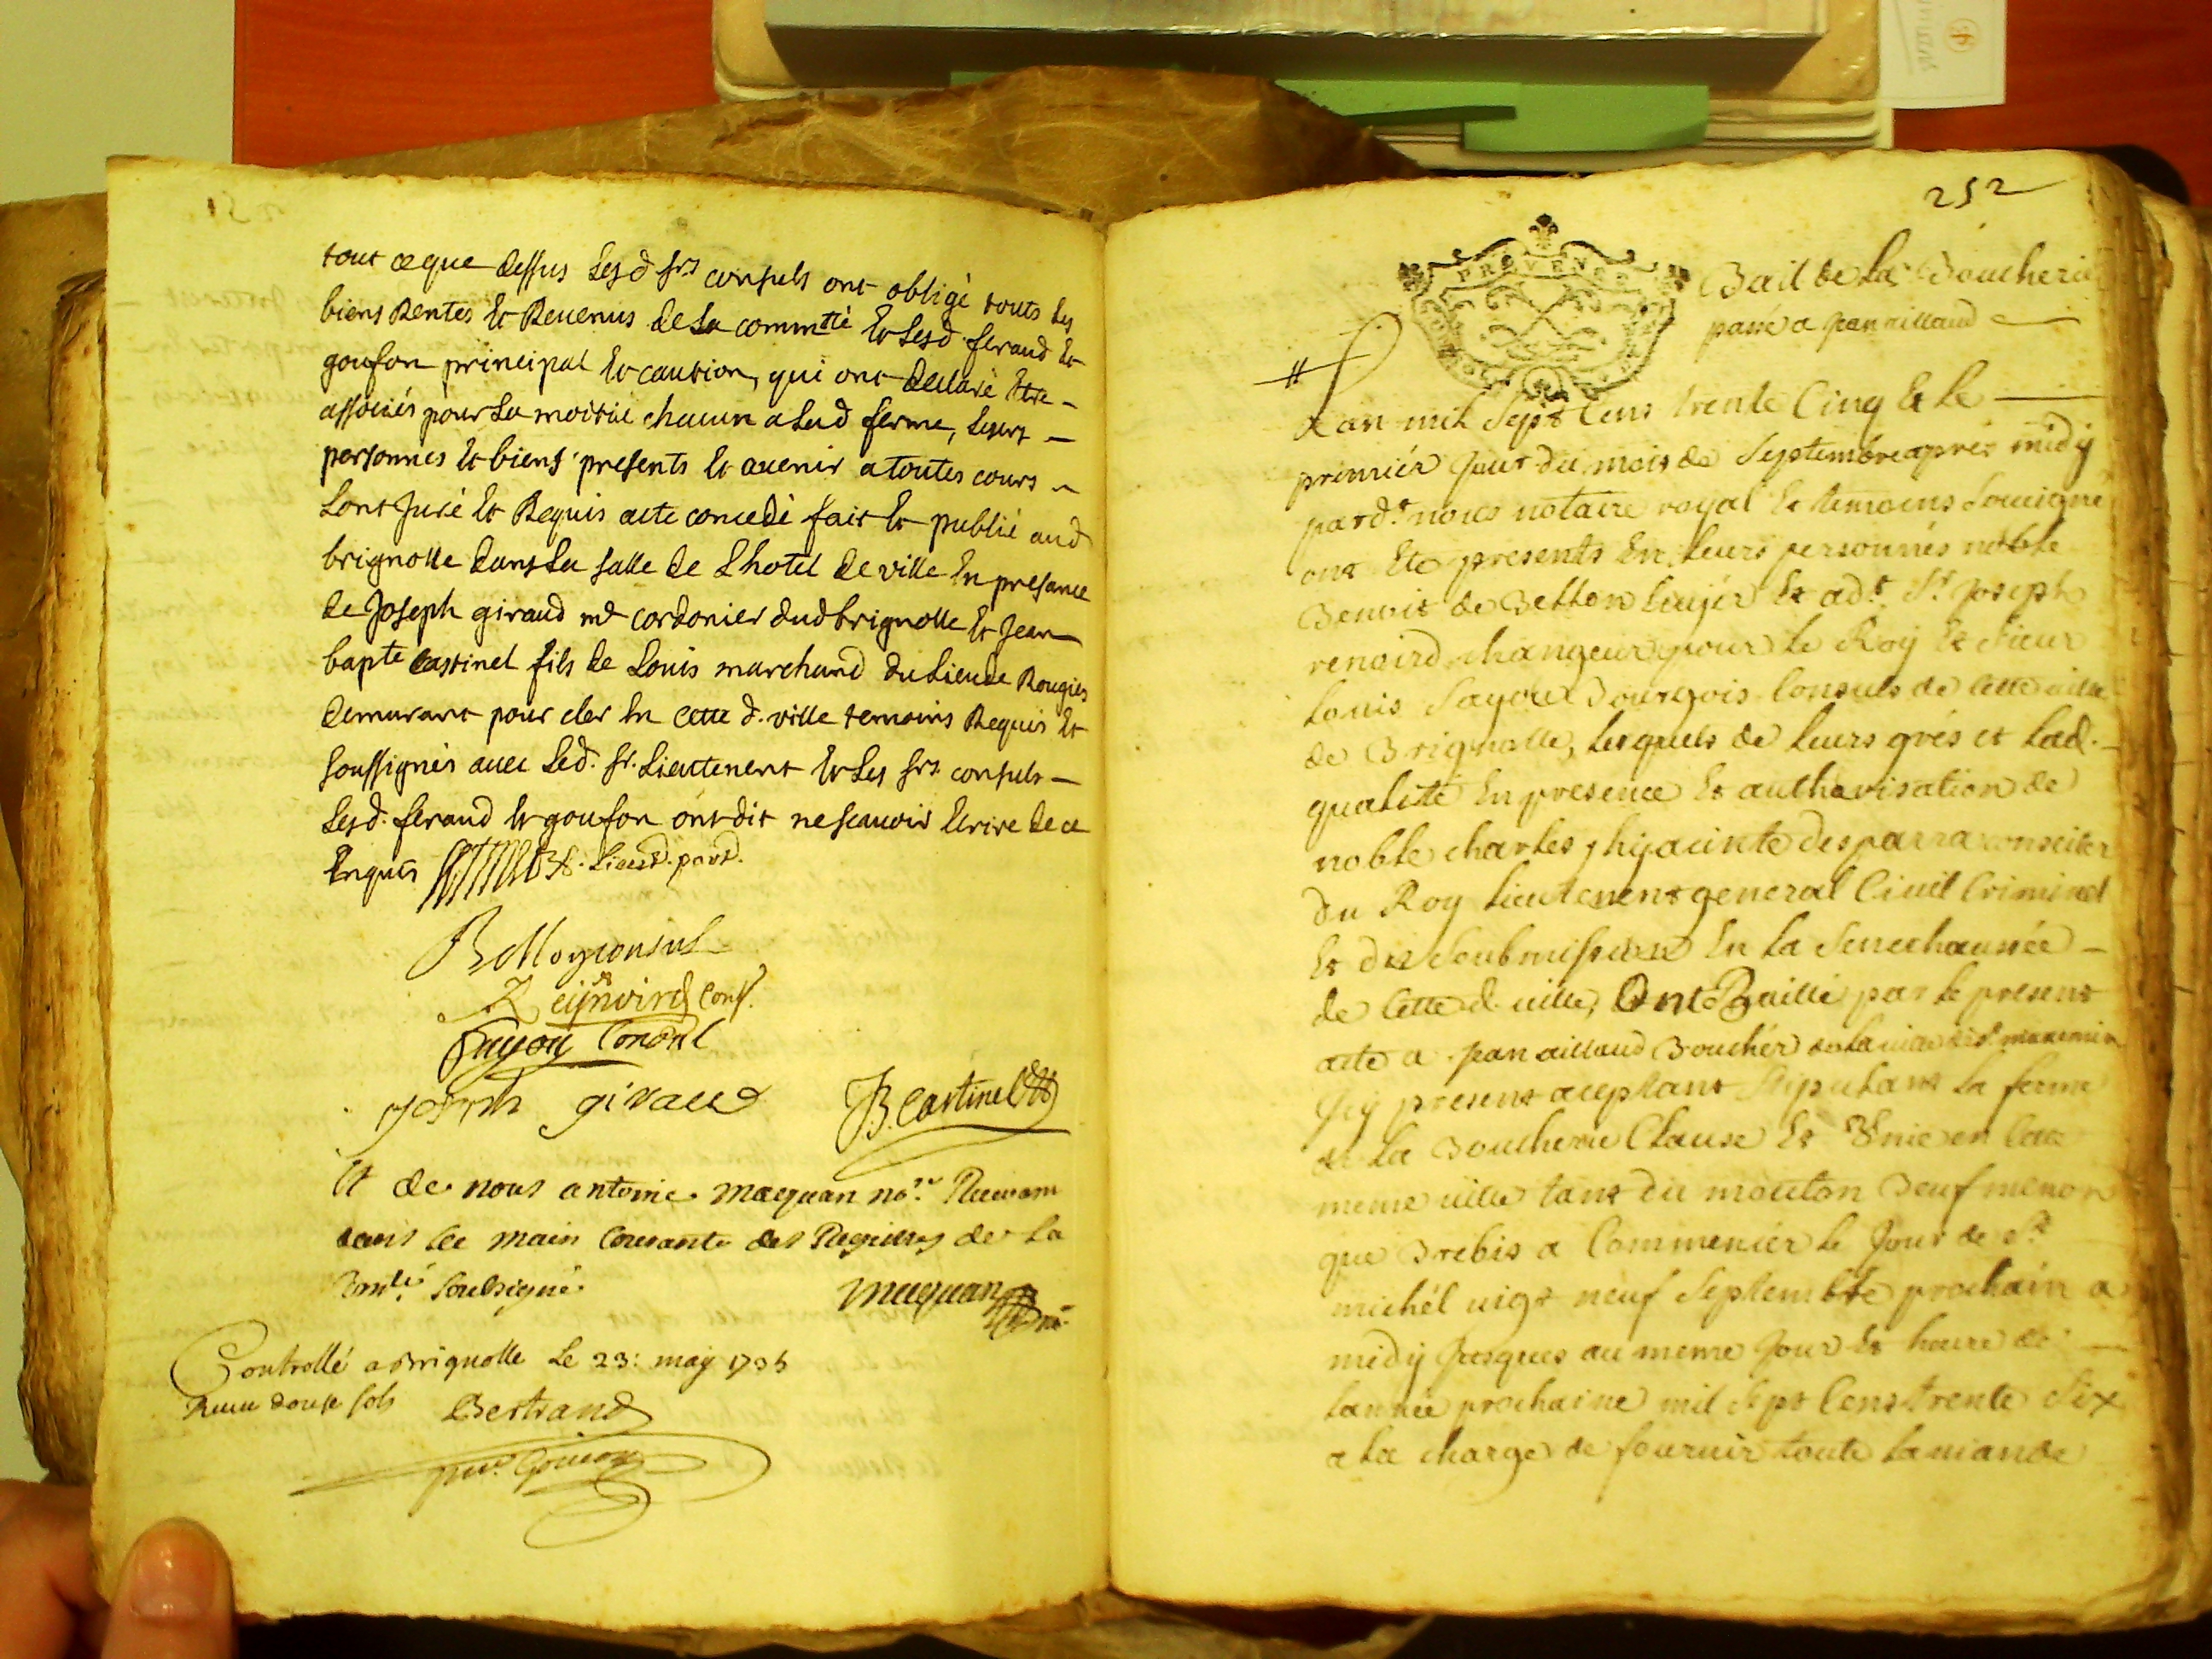 tout ce que dessus Lesd srs consuls ont obligé touts les
biens Rentes et Revenus de La commtté et Lesd. feraud et
goufon principal et caution, qui ont declaré être
associés pour La moitié chacun a Lad ferme, Leurs
personnes et biens presents et avenir a toutes cours
Lont Juré et Requis acte concedé fait et publié aud
brignolle dans La salle de Lhotel de ville En presance
de Joseph giraud md cordonier dud brignolle et Jean
bapte Castinel fils de Louis marchand du Lieu de Rougiés
demurant pour cler en cette d. ville temoins Requis et
soussignés avec Led. sr. Lieutenent et Les srs consuls
Lesd. feraud et goufon ont dit ne scauoir Ecrire de ce
Enquis
Lieut. part.
consul
Reynoird Cons.
Sayou Consul
Joseph giraud
JB. Castinel
Et de nous antoine maquan nore Recevant
dans Le main Courante des Registres de La
Comté. soubsigné.
maquan nre
Controllé a Brignolle Le 23: may 1735
Receu douse sols
Bertrand
252
PROVENCE
Bail de La Boucherie
passé a pan aillaud
Lan mil Sept Cens trente Cinq et le
premiér Jour du mois de Septembre aprés midy
pard.t nous notaire royal et temoins souzigné
ont Eté presents En leurs personnes noble
Benoit de Bellon Ecuyér et adt. Sr Joseph
renoird changeur pour le Roy et sieur
Louis Sayou Bourgois Consuls de Cette ville
de Brignolle, lesquels de leurs grés et lad.
qualitté En presence et authorisation de
noble charles hyjacinte desparra conseiller
du Roy lieutenent general Civil Criminel
Et des Soubmissions En la Senechaussée
de Cette d. ville, Ont Baillé par le present
acte a pan aillaud Bouchér de la ville de st maximin
Icy present aceptant Stipulant la ferme
de la Boucherie Clause et Vnie en Cete
meme ville tant du mouton Beuf menon
que Brebis a Commencér le Jour de st
michél vigt neuf Septembre prochain a
midy Jusques au meme Jour et heure de
Lannée prochaine mil Sept Cens trente Six
a la charge de fournir toute la viande